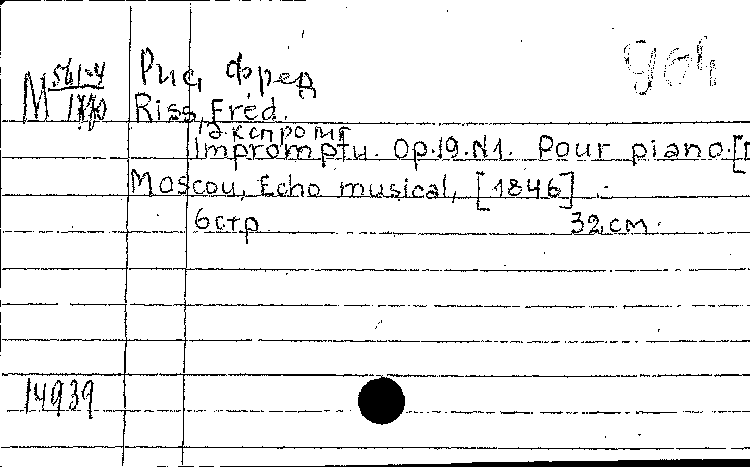 Рис, Фред
М 561-4
Riss, Fréd.
Экспромт
Impromptu. Op.19.N1. Pour piano. [
Moscou, Echo musical, [1846] .-
6стр 32 см.
14939